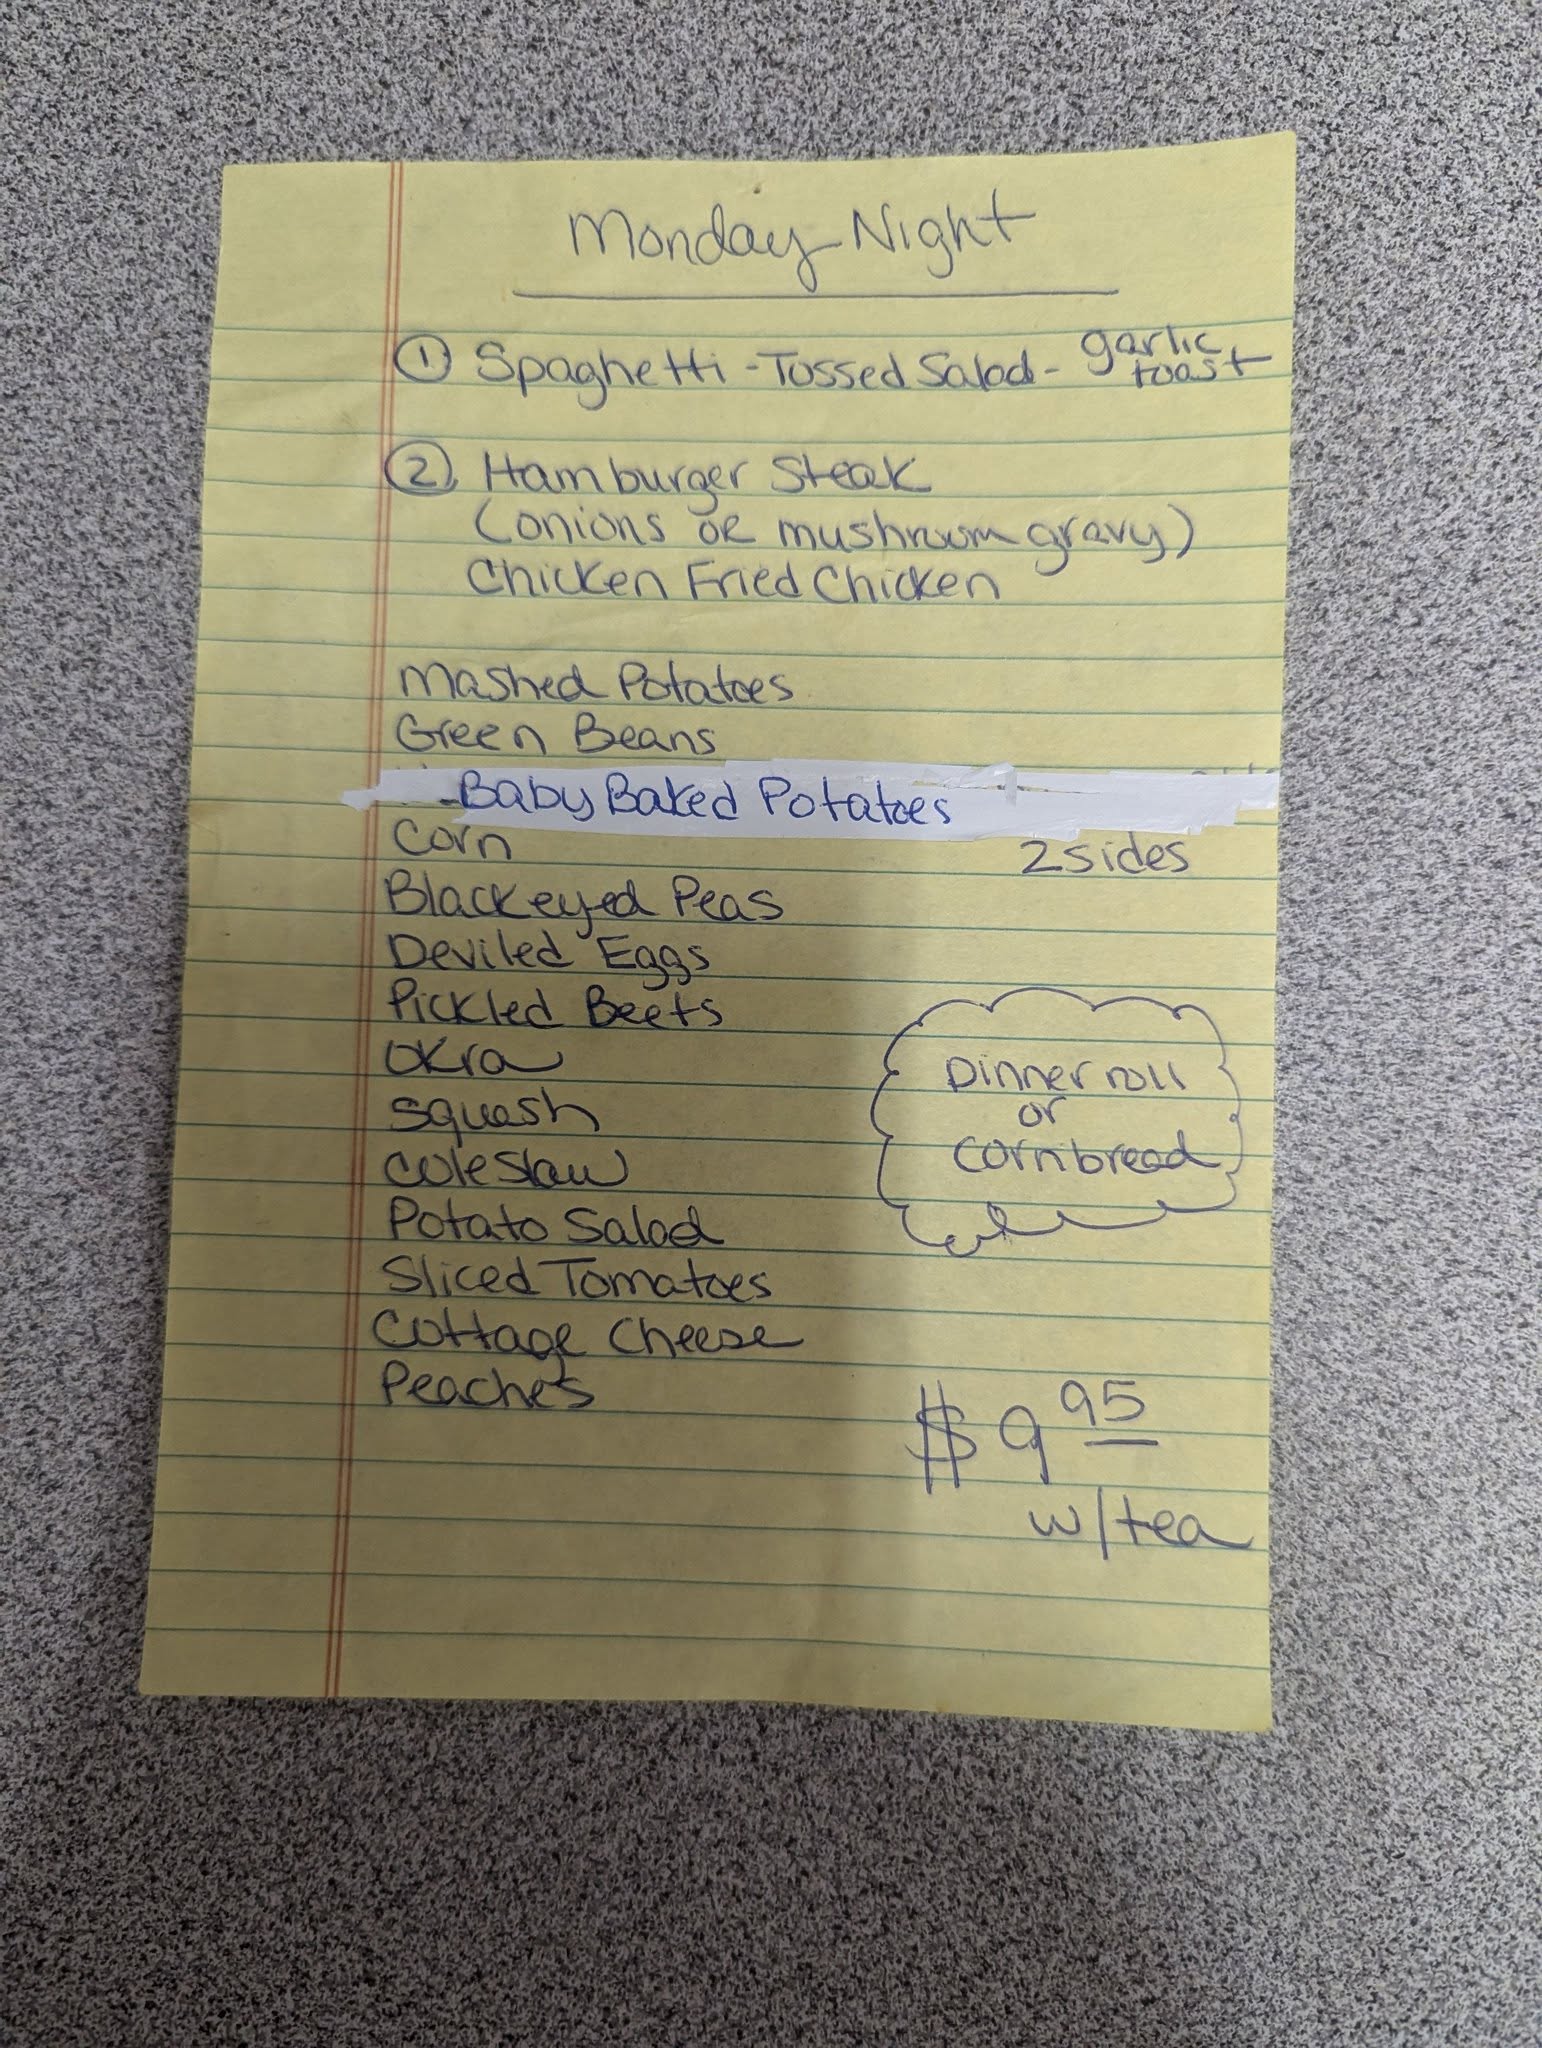 Monday Night
① Spaghetti - Tossed Salad - garlic toast
② Hamburger Steak
(onions OR mushroom gravy)
Chicken Fried Chicken
Mashed Potatoes
Green Beans
Baby Baked Potatoes
Corn
2 sides
Blackeyed Peas
Deviled Eggs
Pickled Beets
Okra
Squash
Coleslaw
Potato Salad
Sliced Tomatoes
Cottage Cheese
Peaches
Dinner roll
or
Cornbread
$9 95
w/tea